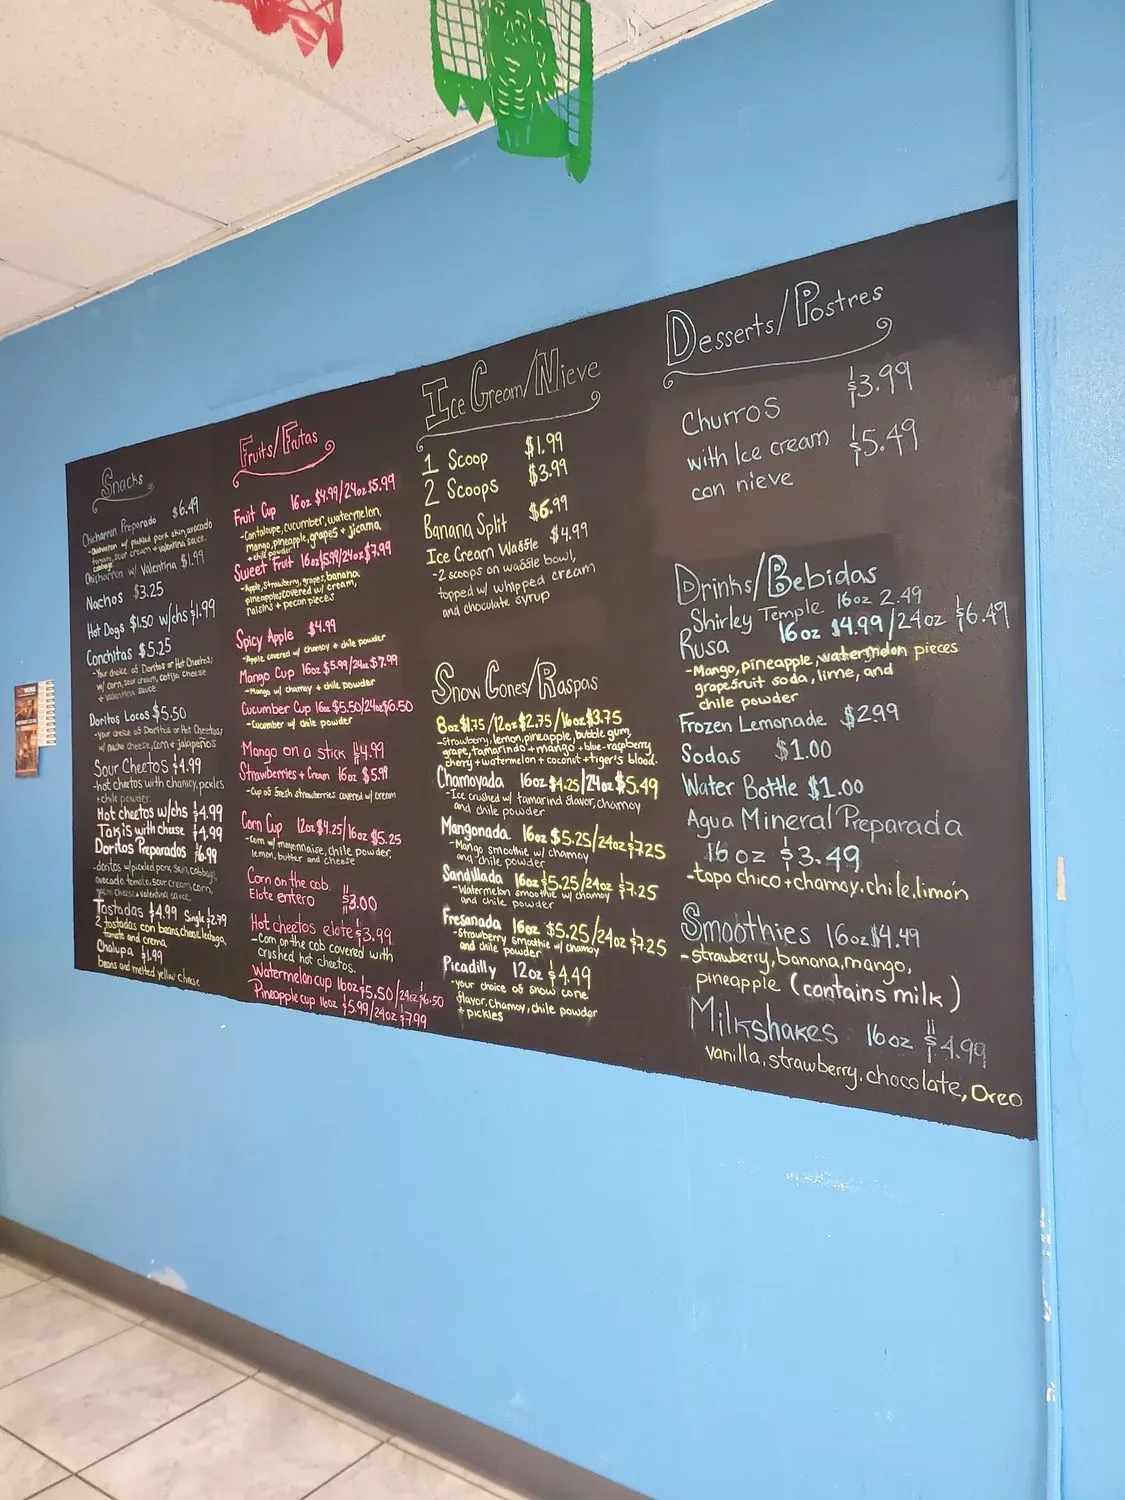 Snacks
Chicharron Preparado $6.49
-Chicharron w/ pickled pork skin, avocado
tomato, sour cream + valentina sauce.
cabbage
Chicharron w/ Valentina $1.99
Nachos $3.25
Hot Dogs $1.50 w/chs $1.99
Conchitas $5.25
-Your choice of Doritos or Hot Cheetos;
w/ corn, sour cream, cotija cheese
+ valentina sauce
Doritos Locos $5.50
-Your choice of Doritos or Hot Cheetos;
w/ nacho cheese, corn + jalapeños
Sour Cheetos $4.99
-hot cheetos with chamoy, pickles
+ chile powder.
Hot cheetos w/chs $4.99
Takis with cheese $4.99
Doritos Preparados $6.99
-doritos w/ pickled pork skin, cabbage,
avocado, tomato, sour cream, corn,
nacho cheese + valentina sauce
Tostadas $4.99 Single $2.79
2 tostadas con beans, cheese, lechuga,
tomato and crema.
Chalupa $1.99
beans and melted yellow cheese
Fruits/Frutas
Fruit Cup 16oz $4.99/24oz $5.99
-Cantaloupe, cucumber, watermelon,
mango, pineapple, grapes + jicama
+ chile powder
Sweet Fruit 16oz $5.99/24oz $7.99
-Apple, Strawberry, grapes, banana
pineapple; covered w/ cream,
raisins + pecan pieces
Spicy Apple $4.99
-Apple covered w/ chamoy + chile powder
Mango Cup 16oz $5.99/24oz $7.99
-Mango w/ chamoy + chile powder
Cucumber Cup 16oz $5.50/24oz $6.50
-Cucumber w/ chile powder
Mango on a stick $4.99
Strawberries + Cream 16oz $5.99
-Cup of fresh strawberries covered w/ cream
Corn Cup 12oz $4.25/16oz $5.25
-Corn w/ mayonnaise, chile powder,
lemon, butter and cheese
Corn on the cob.
Elote entero $3.00
Hot cheetos elote $3.99
-Corn on the cob covered with
crushed hot cheetos.
Watermelon cup 16oz $5.50/24oz $6.50
Pineapple cup 16oz $5.99/24oz $7.99
Ice Cream/Nieve
1 Scoop $1.99
2 Scoops $3.99
Banana Split $6.99
Ice Cream Waffle $4.99
-2 scoops on waffle bowl,
topped w/ whipped cream
and chocolate syrup
Snow Cones/Raspas
8oz $1.75/12oz $2.75/16oz $3.75
-Strawberry, lemon, pineapple, bubble gum,
grape, tamarindo + mango + blue-raspberry,
cherry + watermelon + coconut + tiger's blood.
Chamoyada 16oz $4.25/24oz $5.49
-Ice crushed w/ tamarind flavor, chamoy
and chile powder
Mangonada 16oz $5.25/24oz $7.25
-Mango smoothie w/ chamoy
and chile powder
Sandillada 16oz $5.25/24oz $7.25
-Watermelon smoothie w/ chamoy
and chile powder
Fresanada 16oz $5.25/24oz $7.25
-Strawberry smoothie w/ chamoy
and chile powder
Picadilly 12oz $4.49
-your choice of snow cone
flavor, chamoy, chile powder
+ pickles
Desserts/Postres
Churros $3.99
with Ice cream $5.49
con nieve
Drinks/Bebidas
Shirley Temple 16oz 2.49
Rusa 16oz $4.99/24oz $6.49
-Mango, pineapple, watermelon pieces
grapefruit soda, lime, and
chile powder
Frozen Lemonade $2.99
Sodas $1.00
Water Bottle $1.00
Agua Mineral Preparada
16oz $3.49
-topo chico + chamoy, chile, limon
Smoothies 16oz $4.49
-strawberry, banana, mango,
pineapple (contains milk)
Milkshakes 16oz $4.99
vanilla, strawberry, chocolate, Oreo